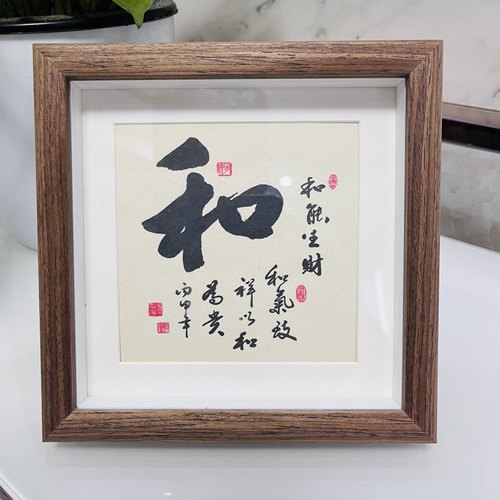 和
和能生財
和氣致
祥以和
為貴
丙申年